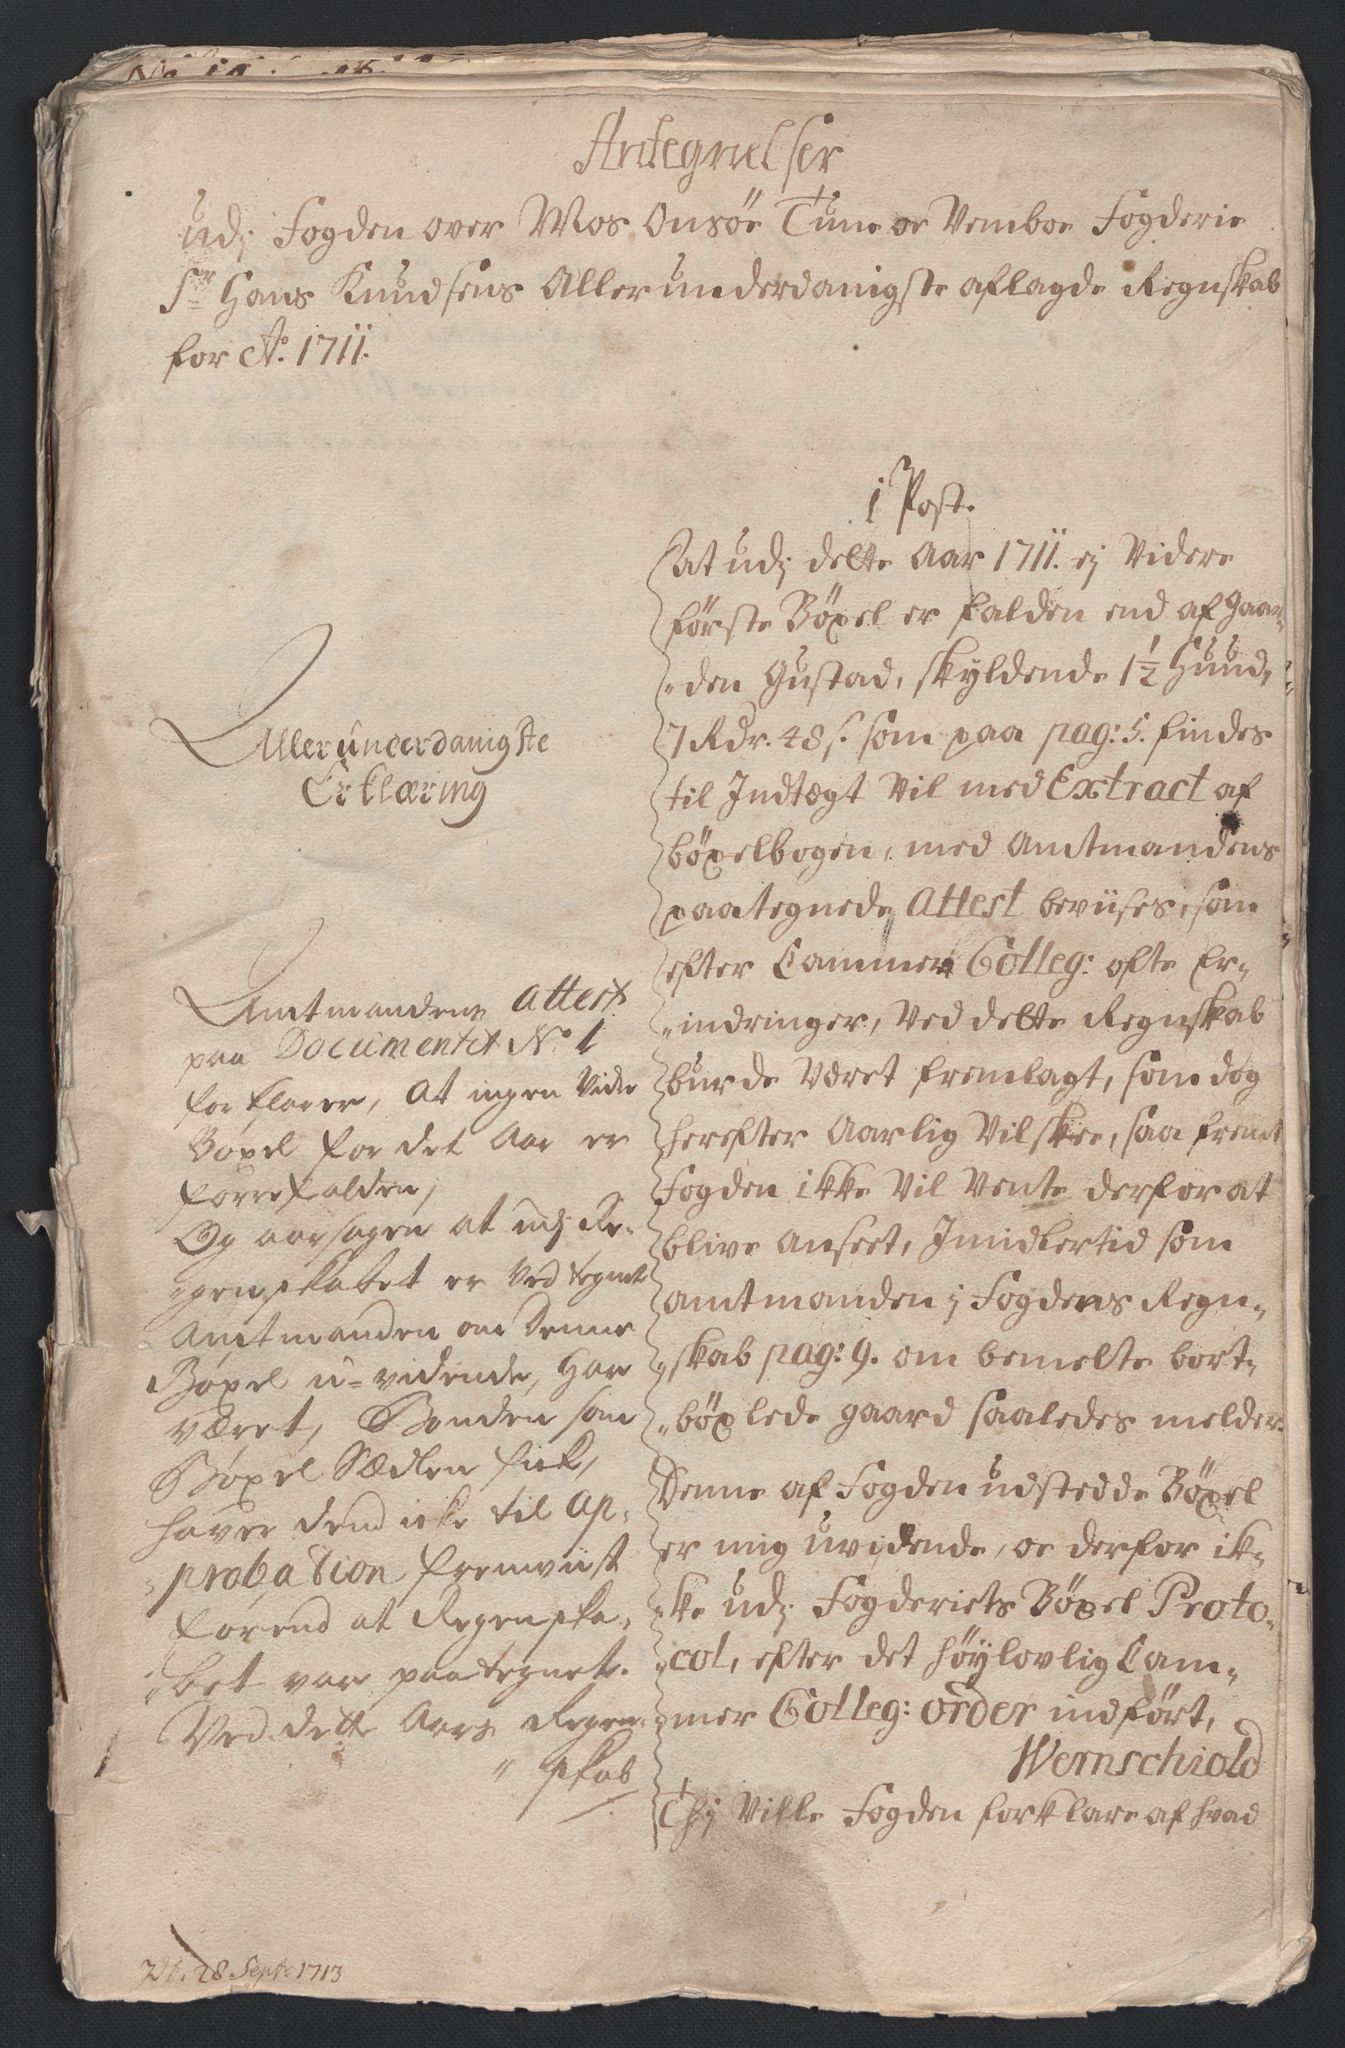 Antegnelser
udj Fogden over Mos Onsöe Tune oc Vemboe Fogderie
Sr Hans Knudsens Allerunderdanigste aflagde Regnskab
for Ao. 1711.
Allerunderdanigste
Erklæring
Amtmandens Attest
paa Documentet No 1
forklarer, At ingen Vider
Böxel for det Aar er
forrefalden,
Og aarsagen at udj Re-
genskabet er Ved tegnet
Amtmanden om Denne
Böxel u-vidende, har
været, Bonden som
Böxel Sædlen fik,
haver dend icke til Ap-
probation fremviist
förend at Regenska-
bet var paategnet.
Ved dette Aars Regen-
skab
1 Post.
At udj dette Aar 1711. ej Videre
förste Böxel er falden end af gaar-
den Gustad, skyldende 1½ Hund,
7 Rdr. 48 s. som paa pag: 5. findes
til Indtægt Vil med Extract af
böxelbogen, med Amtmandens
paategnede Attest beviises, som
efter Cammer Colleg: ofte Er-
indringer, Ved dette Regnskab
burde Været fremlagt, som dog
herefter Aarlig Vil skee, saa fremt
Fogden ikke Vil Vente derfor at
blive anseet, Imidlertid som
amtmanden j Fogdens Regn-
skab pag: 9. om bemelte bort-
böxlede gaard saaledes melder.
Denne af Fogden udstedde Böxel
er mig uvidende, oc derfor ik-
ke udj Fogderiets Böxel Proto-
col, efter det höylovlig Cam-
mer Colleg: order indfört,
Wernschiold
Thj Ville Fogden forklare af hvad
28 Septr 1713